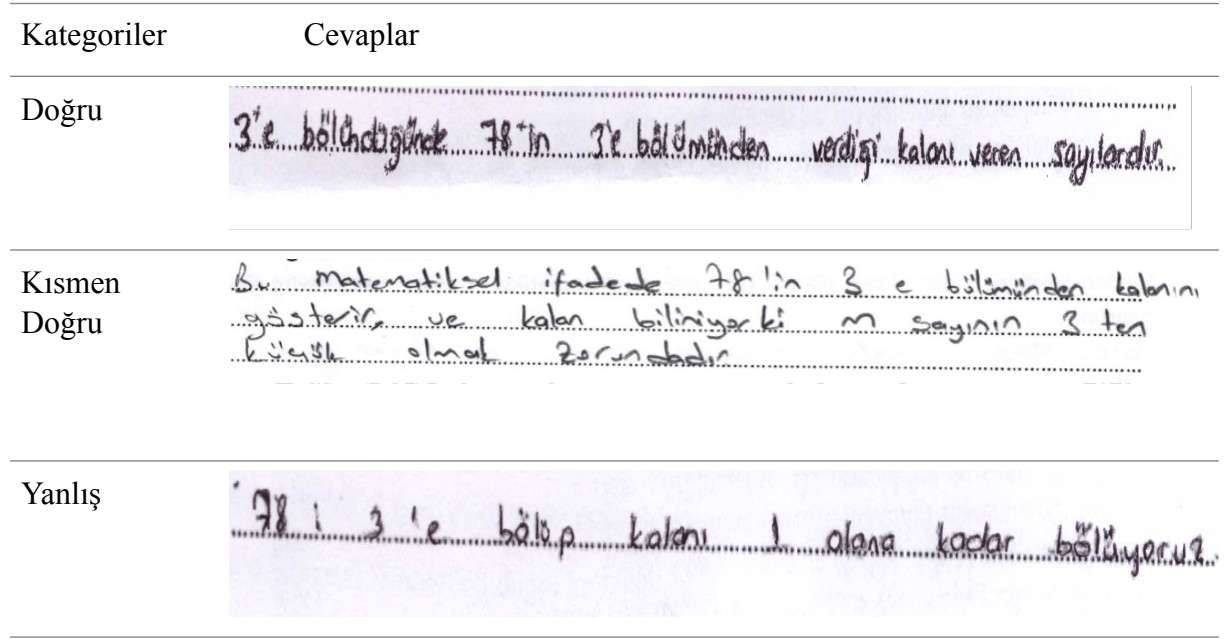 Kategoriler Cevaplar
Doğru
3'e bölündüğünde 78'in 3'e bölümünden verdiği kalanı veren sayılardır.
Kısmen
Doğru
Bu matematiksel ifadede 78'in 3 e bölümünden kalanını
gösterir, ve kalan biliniyorki m sayının 3 ten
küçük olmak zorundadır.
Yanlış
78 i 3'e bölüp kalanı 1 olana kadar bölüyoruz.